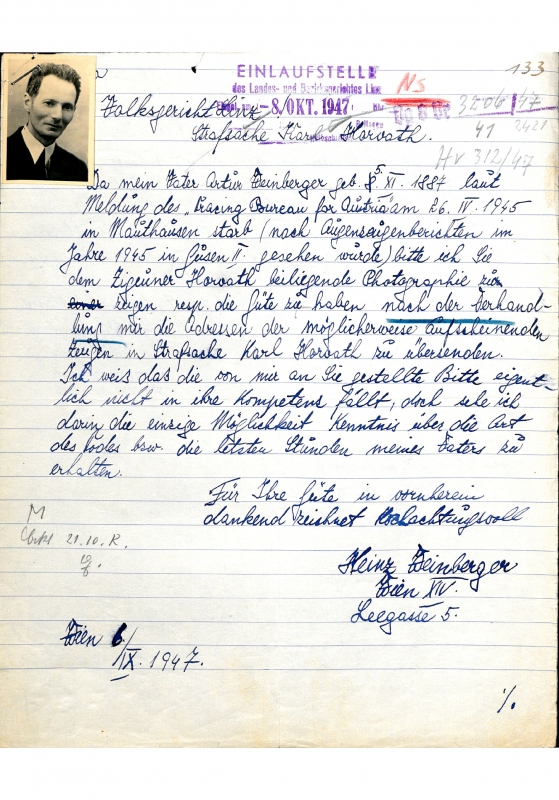 133
EINLAUFSTELLE
des Landes- und Bezirksgerichtes Linz
Ns
-8. OKT. 1947
3506/47
Volksgericht Linz
41 2421
Strafsache Karl Horvath.
Hv 312/47
Da mein Vater Artur Weinberger geb. 5. XI. 1887 laut
Meldung des „Tracing Bureau for Austria" am 26. IV. 1945
in Mauthausen starb (nach Augenzeugenberichten im
Jahre 1945 in Gusen II. gesehen wurde) bitte ich Sie
dem Zigeuner Horvath beiliegende Photographie zu
zeigen resp. die Güte zu haben nach der Verhand-
lung mir die Adressen der möglicherweise aufscheinenden
Zeugen in Strafsache Karl Horvath zu übersenden.
Ich weis das die von mir an Sie gestellte Bitte eigent-
lich nicht in ihre Kompetenz fällt, doch sehe ich
darin die einzige Möglichkeit Kenntnis über die Art
des Todes bsw. die letzten Stunden meines Vaters zu
erhalten.
Für Ihre Güte in vornherein
dankend zeichnet Hochachtungsvoll
M
21.10. R.
Heinz Weinberger
Wien XIV.
Leegasse 5.
Wien 6/
IX. 1947.
%